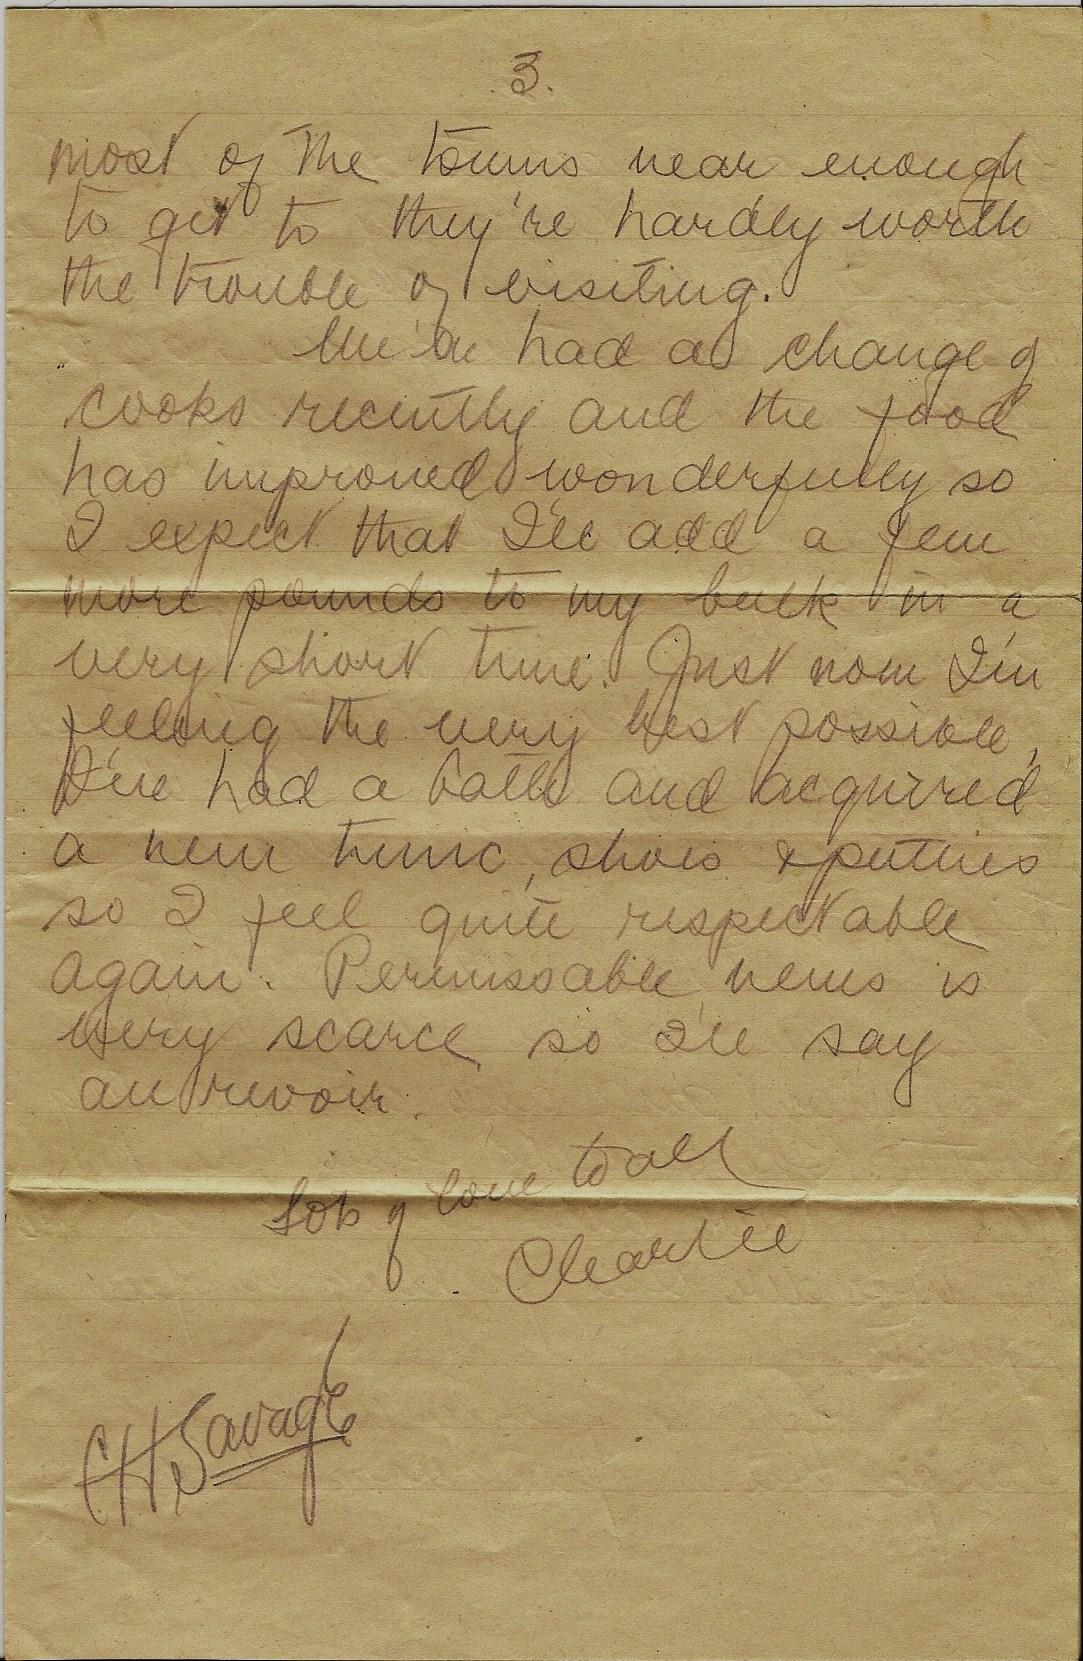 3.
most of the towns near enough
to get to they're hardly worth
the trouble of visiting.
We've had a change of
cooks recently and the food
has improved wonderfully so
I expect that I'll add a few
more pounds to my bulk in a
very short time. Just now I'm
feeling the very best possible,
I've had a bath and acquired
a new tunic, shoes & putties
so I feel quite respectable
again. Permissable news is
very scarce so I'll say
au revoir.
Lots of love to all
Charlie
CHSavage